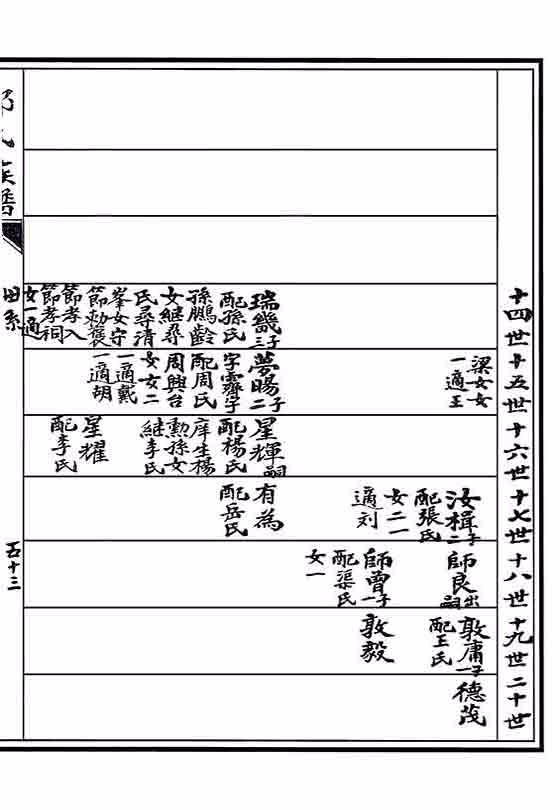 十四世
瑞畿三子
配孫氏
孫鵬齡
女繼尋
氏尋清
峯女守
節勅褒
節孝入
節孝祠
女一適
十五世
梁女女
一適王
夢暘二子
字霽宇
配周氏
周興台
女女二
一適戴
一適胡
十六世
星輝嗣子
配楊氏
庠生楊
勲孫女
繼李氏
星耀
配李氏
十七世
汝楫二子
配張氏
女二一
適刘
有為
配岳氏
十八世
師良出嗣
師曾一子
配渠氏
女一
十九世
敦庸一子
配王氏
敦毅
二十世
德茂
氏族譜
田系
五十三